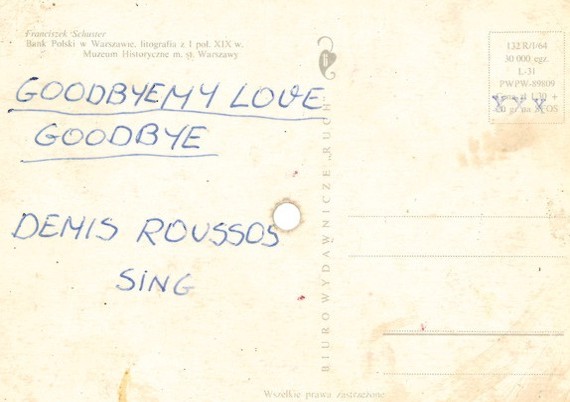 Franciszek Schuster
Bank Polski w Warszawie, litografia z I poł. XIX w.
Muzeum Historyczne m. st. Warszawy
GOODBYE MY LOVE
GOODBYE
DEMIS ROUSSOS
SING
BIURO WYDAWNICZE RUCH
132 R/I/64
30 000 egz.
L-31
PWPW-89809
Wszelkie prawa zastrzeżone